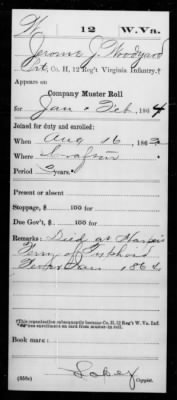 W | 12 | W. Va.
Jerome J. Woodyard
Pvt., Co. H, 12 Reg't Virginia Infantry.†
Appears on
Company Muster Roll
for Jan & Feb, 1864
Joined for duty and enrolled:
When Aug 16, 1862
Where Grafton
Period 3 years.
Present or absent
Stoppage, $ 100 for
Due Gov't, $ 100 for
Remarks: Died at Harpers
Ferry of Typhoid
Fever Jan 1864
†This organization subsequently became Co. H, 12 Reg't W. Va. Inf.
Book mark:
Lobey
(358c) Copyist.